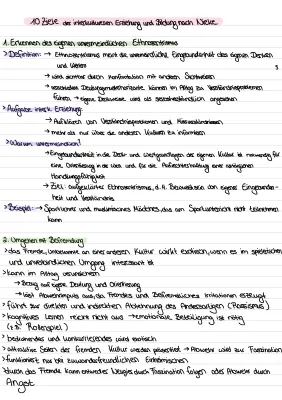 10 Ziele der interkulturellen Erziehung und Bildung nach Nieke
1. Erkennen des eigenen unvermeidlichen Ethnozentrismus
> Definition: → Ethnozentrismus meint die unvermeidliche Eingebundenheit des eigenen Denkens
und Wertens
→ wird sichtbar durch Konfrontation mit anderen Sichtweisen
→ verschiedene Deutungsmusterhorizonte können im Alltag zu Verständnisproblemen
führen, → eigene Denkweise wird als selbstverständlich angesehen
> Aufgabe interk. Erziehung:
→ Aufklären von Verständnisproblemen und Missverständnissen
→ mehr als nur über die anderen Kulturen zu informieren
> Warum unvermeidlich?
→ Eingebundenheit in die Denk- und Wertgrundlagen der eigenen Kultur ist notwendig für
eine Orientierung in der Welt und für die Aufrechterhaltung einer
Handlungsfähigkeit
→ Ziel: aufgeklärter Ethnozentrismus, d.h. Bewusstsein von eigener Eingebunden-
heit und Verständnis
> Beispiel: → Sportlehrer und muslimisches Mädchen, das am Sportunterricht nicht teilnehmen
kann
2. Umgehen mit Befremdung
> das Fremde, Unbekannte an einer anderen Kultur wirkt exotisch, wenn es im spielerischen
und unverbindlichen Umgang interessant ist
> kann im Alltag verunsichern
→ Bezug auf eigene Deutung und Orientierung
→ löst Abwehrimpuls aus, da Fremdes und Befremdliches Irritationen erzeugt
> führt zur direkten und indirekten Ablehnung des Andersartigen (Rassismus)
> kognitives Lernen reicht nicht aus → emotionale Beteiligung ist nötig
(z.B. Rollenspiel)
> bedrohendes und konkurrierendes wird exotisch
> attraktive Seiten der fremden Kultur werden präsentiert → Abwehr wird zur Faszination
> funktioniert nur bei zuwandererfreundlichen Einheimischen
> durch das Fremde kann entweder Neugier durch Faszination folgen oder Abwehr durch
Angst